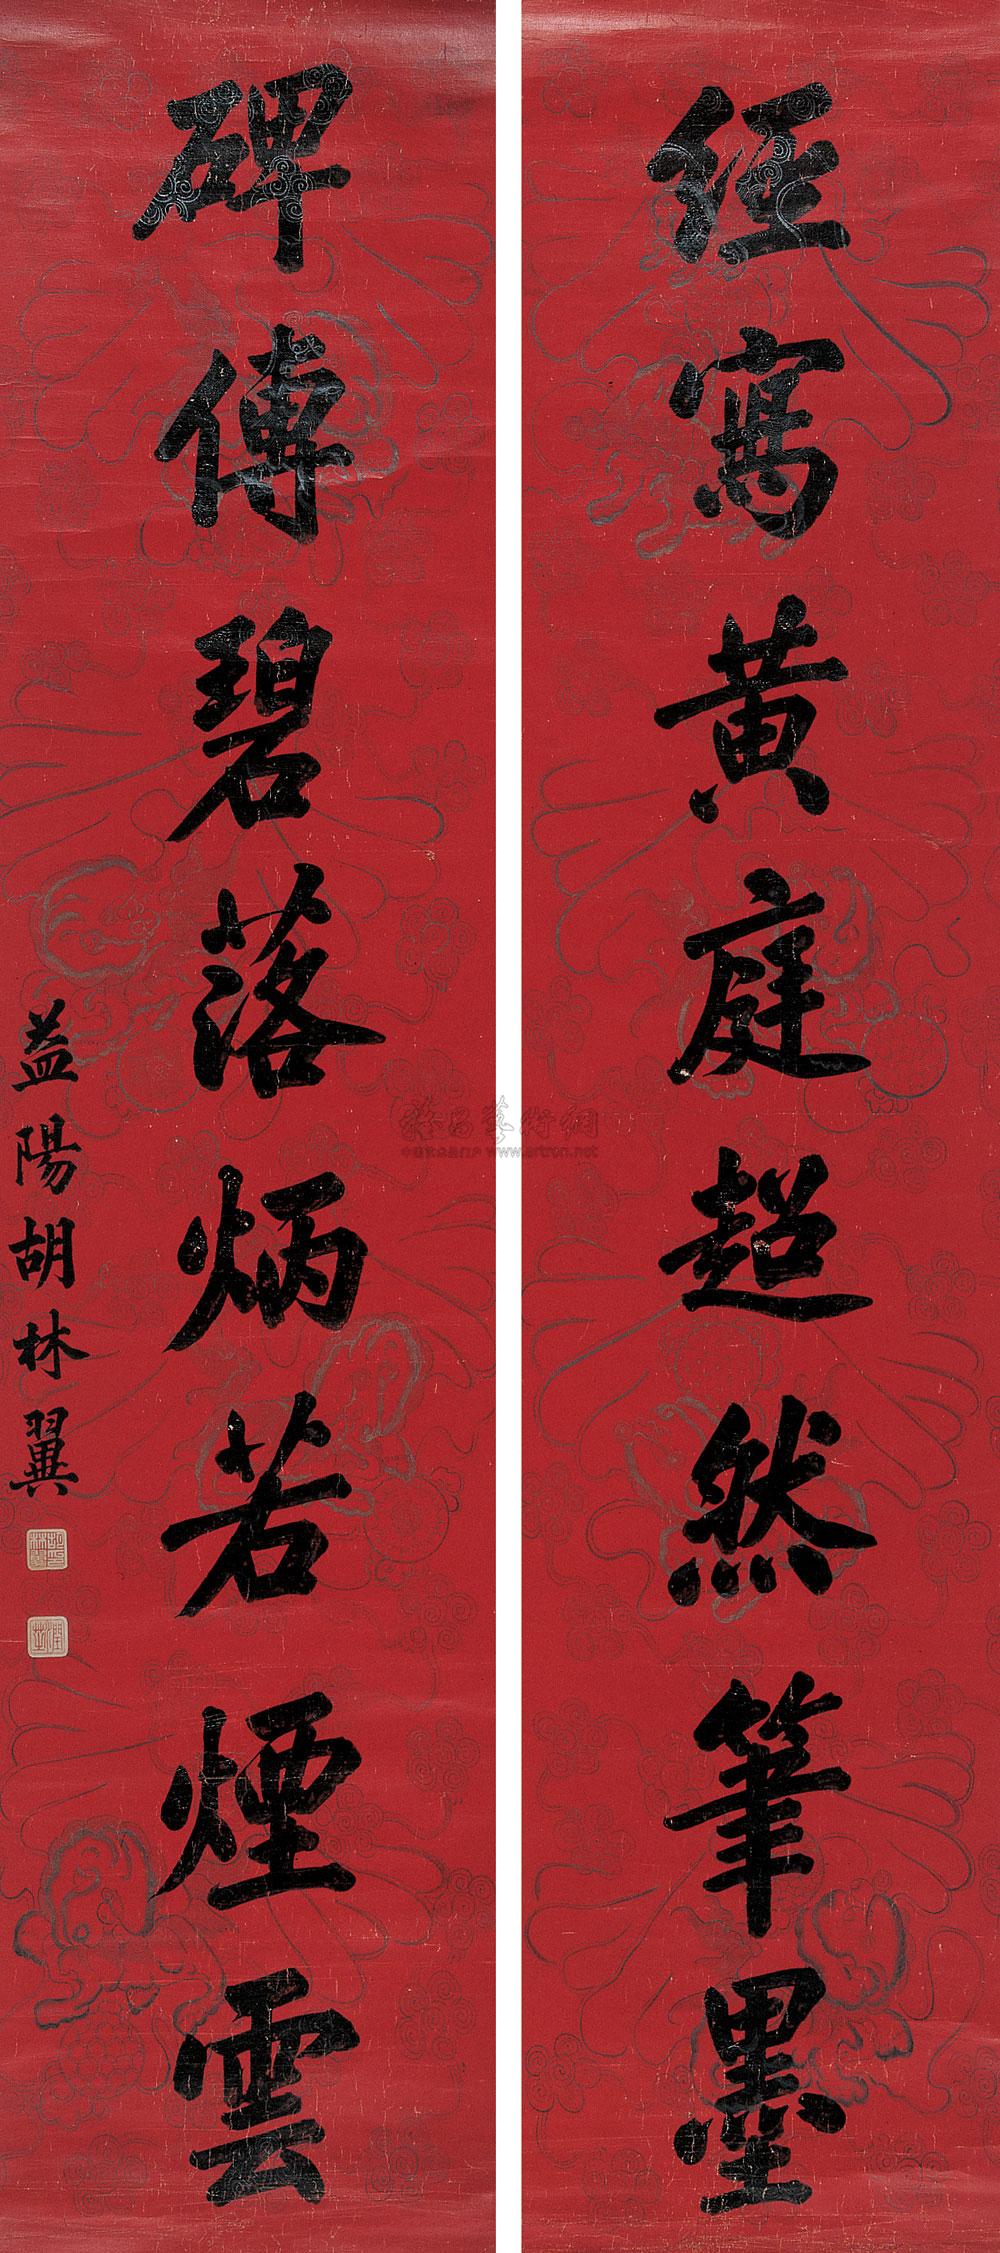 經寫黃庭超然筆墨
碑傳碧落炳若煙雲
益陽胡林翼
www.artron.net